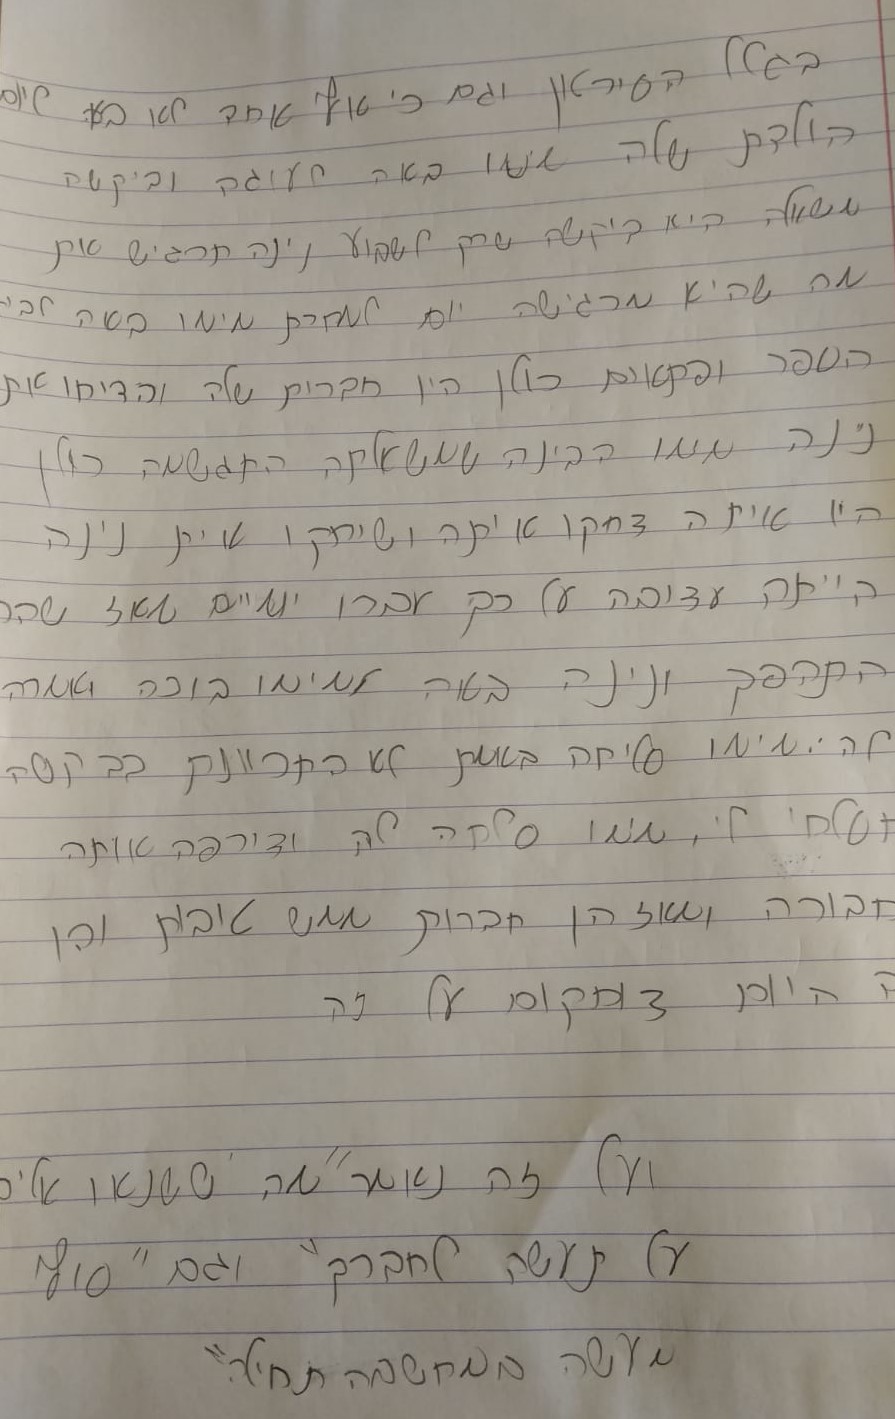 בגלל הסיראון וגם כי אף אחד לא בא ליום
הולדת שלה מימו באה לעוגה וביקשה
משאלה היא ביקשה שרק לשבוע נינה תרגיש את
מה שהיא מרגישה יום למחרת מימו באה לבי
הספר ופתאום כולן היו חברות שלה והדיחו את
נינה מימו הבינה שמשאלתה התגשמה כולן
היו איתה צחקו איתה ושיחקו אית נינה
הייתה עצובה על כך עברו יומיים מאז שהכל
התהפך ונינה באה למימו בוכה ואמרה
לה: מימו סליחה באמת לא התכוונתי בבקשה
תסלחי לי, מימו סלחה לה וצירפה אותה
חבורה ומאז הן חברות ממש טובות והן
ד היום צוחקות על זה
ועל זה נאמר "מה ששנאו אליכ
על תעשה לחברך" וגם "סוף
מעשה במחשבה תחילה"